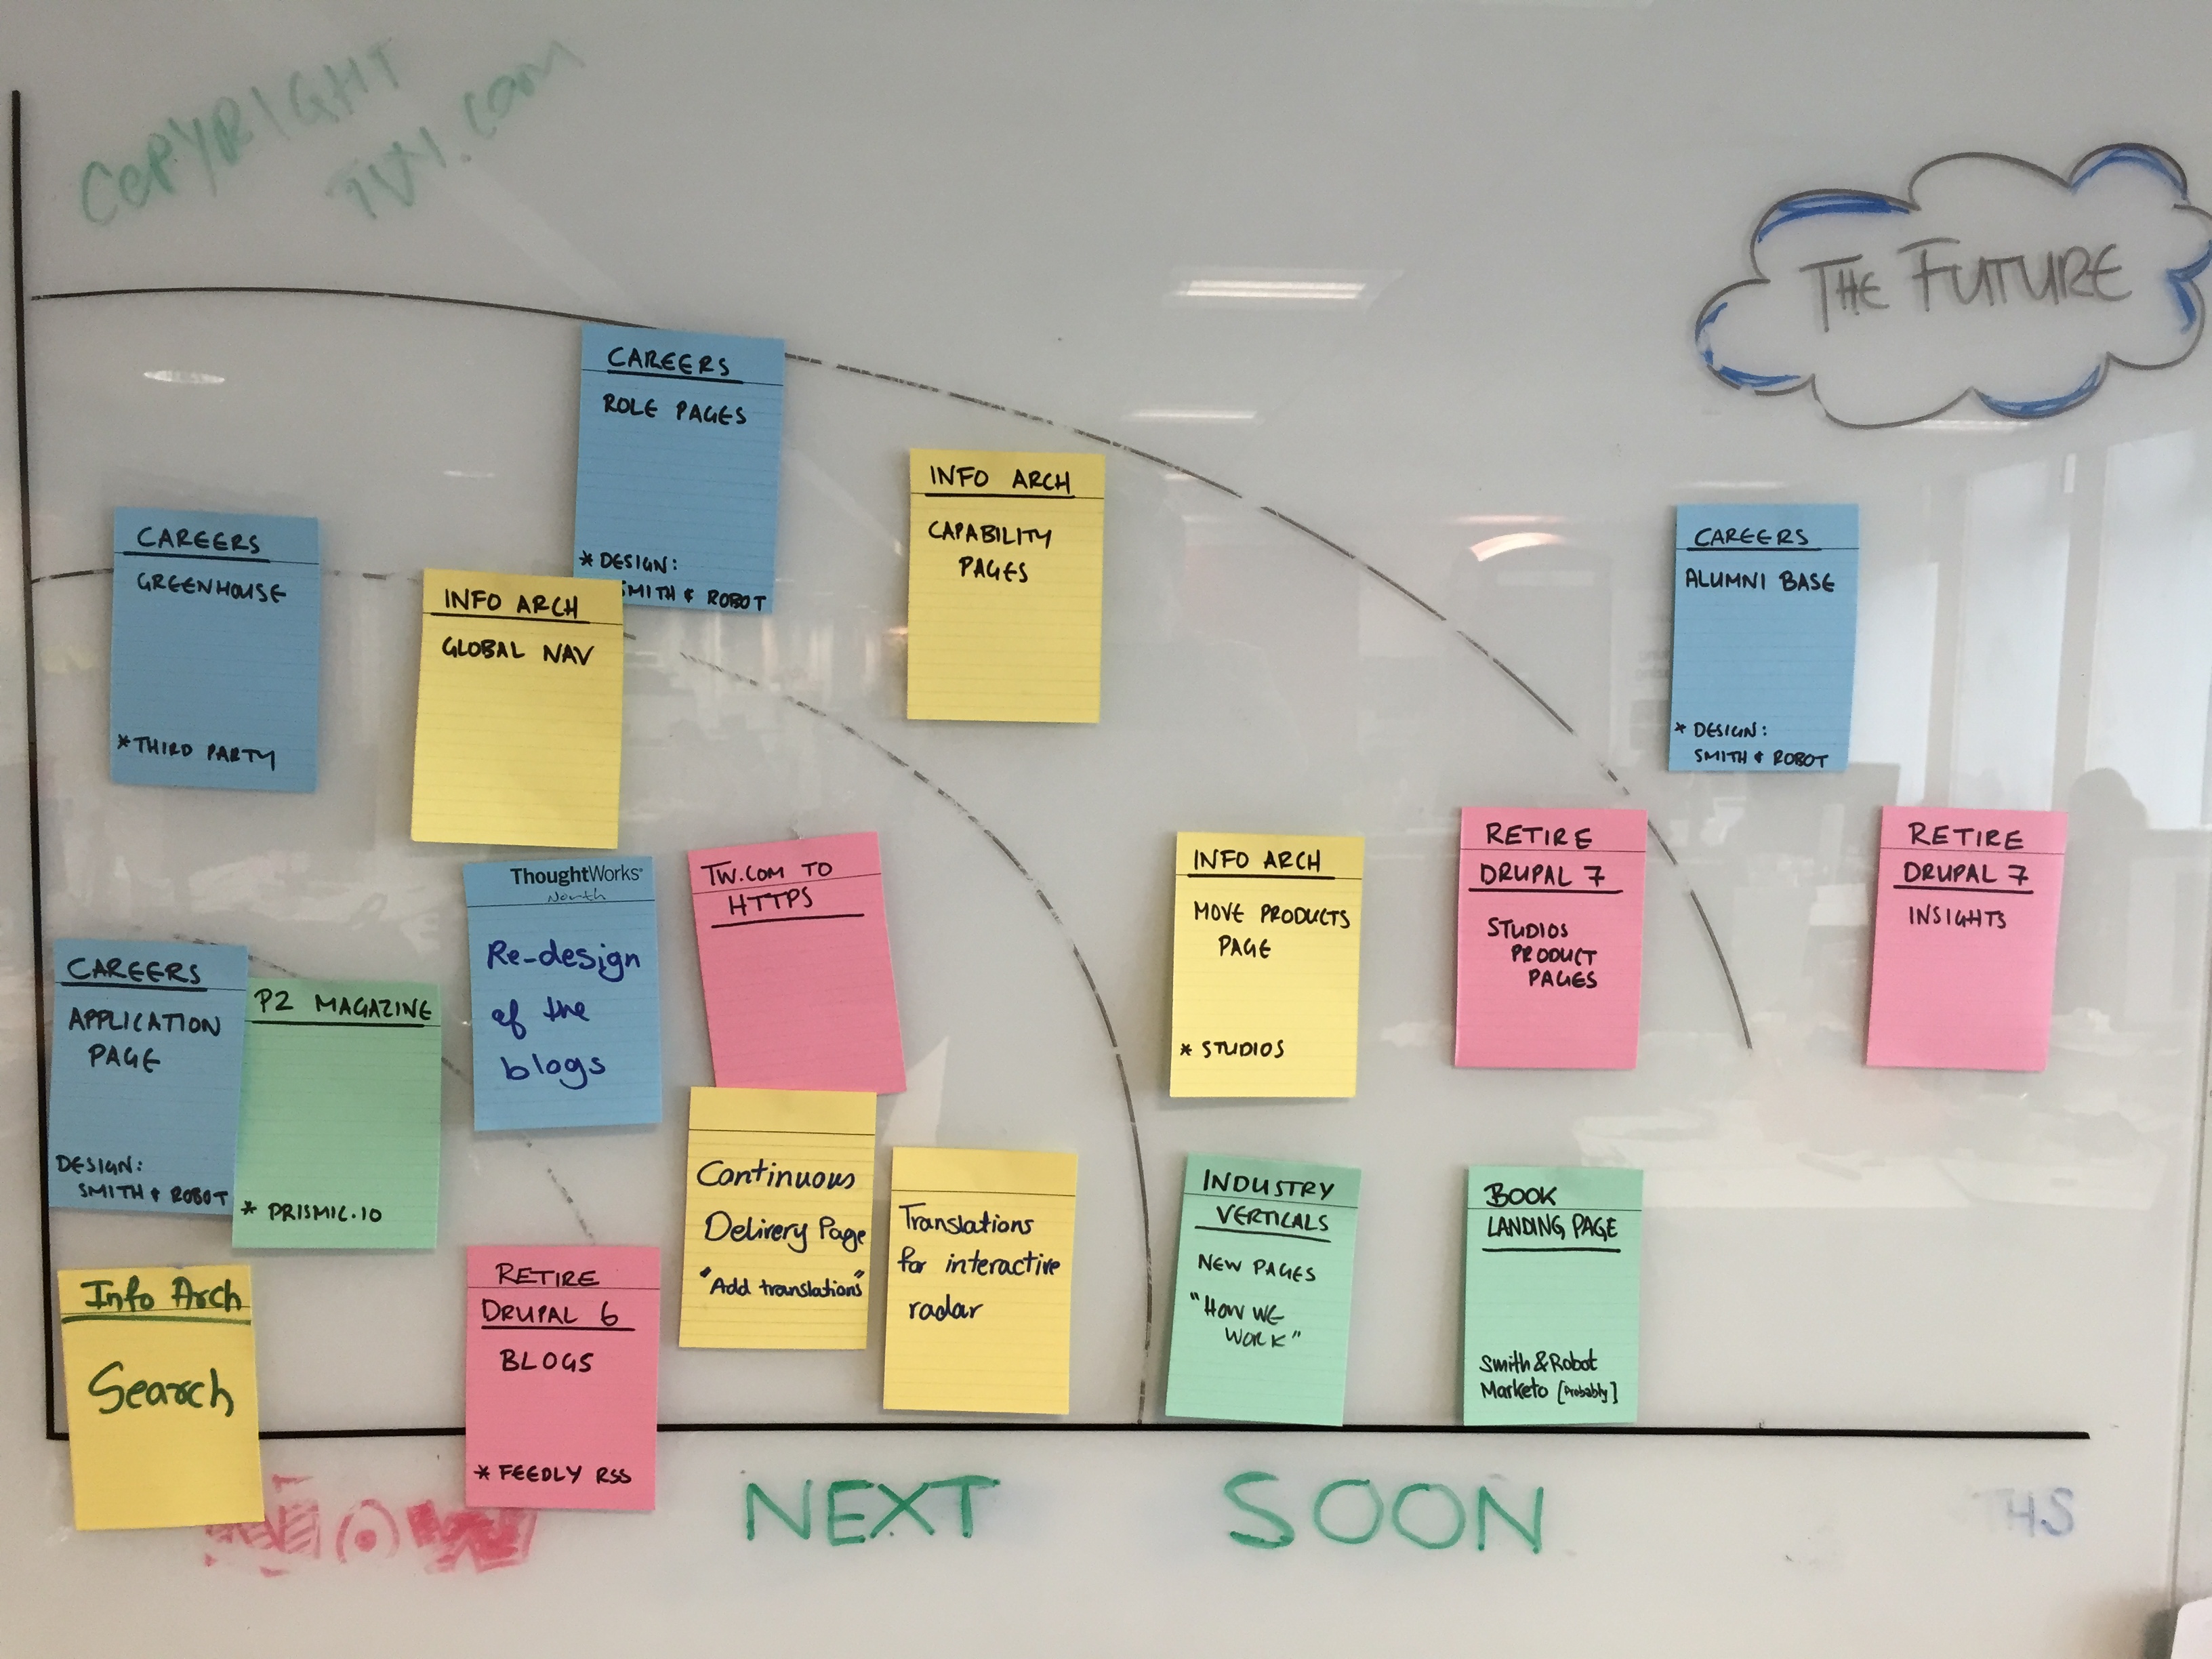 COPYRIGHT
TW.COM
THE FUTURE
CAREERS
ROLE PAGES
* DESIGN:
SMITH & ROBOT
INFO ARCH
CAPABILITY
PAGES
CAREERS
GREENHOUSE
* THIRD PARTY
INFO ARCH
GLOBAL NAV
CAREERS
ALUMNI BASE
* DESIGN:
SMITH & ROBOT
ThoughtWorks®
North
Re-design
of the
blogs
TW.COM TO
HTTPS
INFO ARCH
MOVE PRODUCTS
PAGE
* STUDIOS
RETIRE
DRUPAL 7
STUDIOS
PRODUCT
PAGES
RETIRE
DRUPAL 7
INSIGHTS
CAREERS
APPLICATION
PAGE
DESIGN:
SMITH & ROBOT
P2 MAGAZINE
* PRISMIC.IO
Continuous
Delivery Page
"Add translations"
Translations
for interactive
radar
INDUSTRY
VERTICALS
NEW PAGES
"HOW WE
WORK"
BOOK
LANDING PAGE
Smith & Robot
Marketo [Probably]
Info Arch
Search
RETIRE
DRUPAL 6
BLOGS
* FEEDLY RSS
NOW
NEXT
SOON